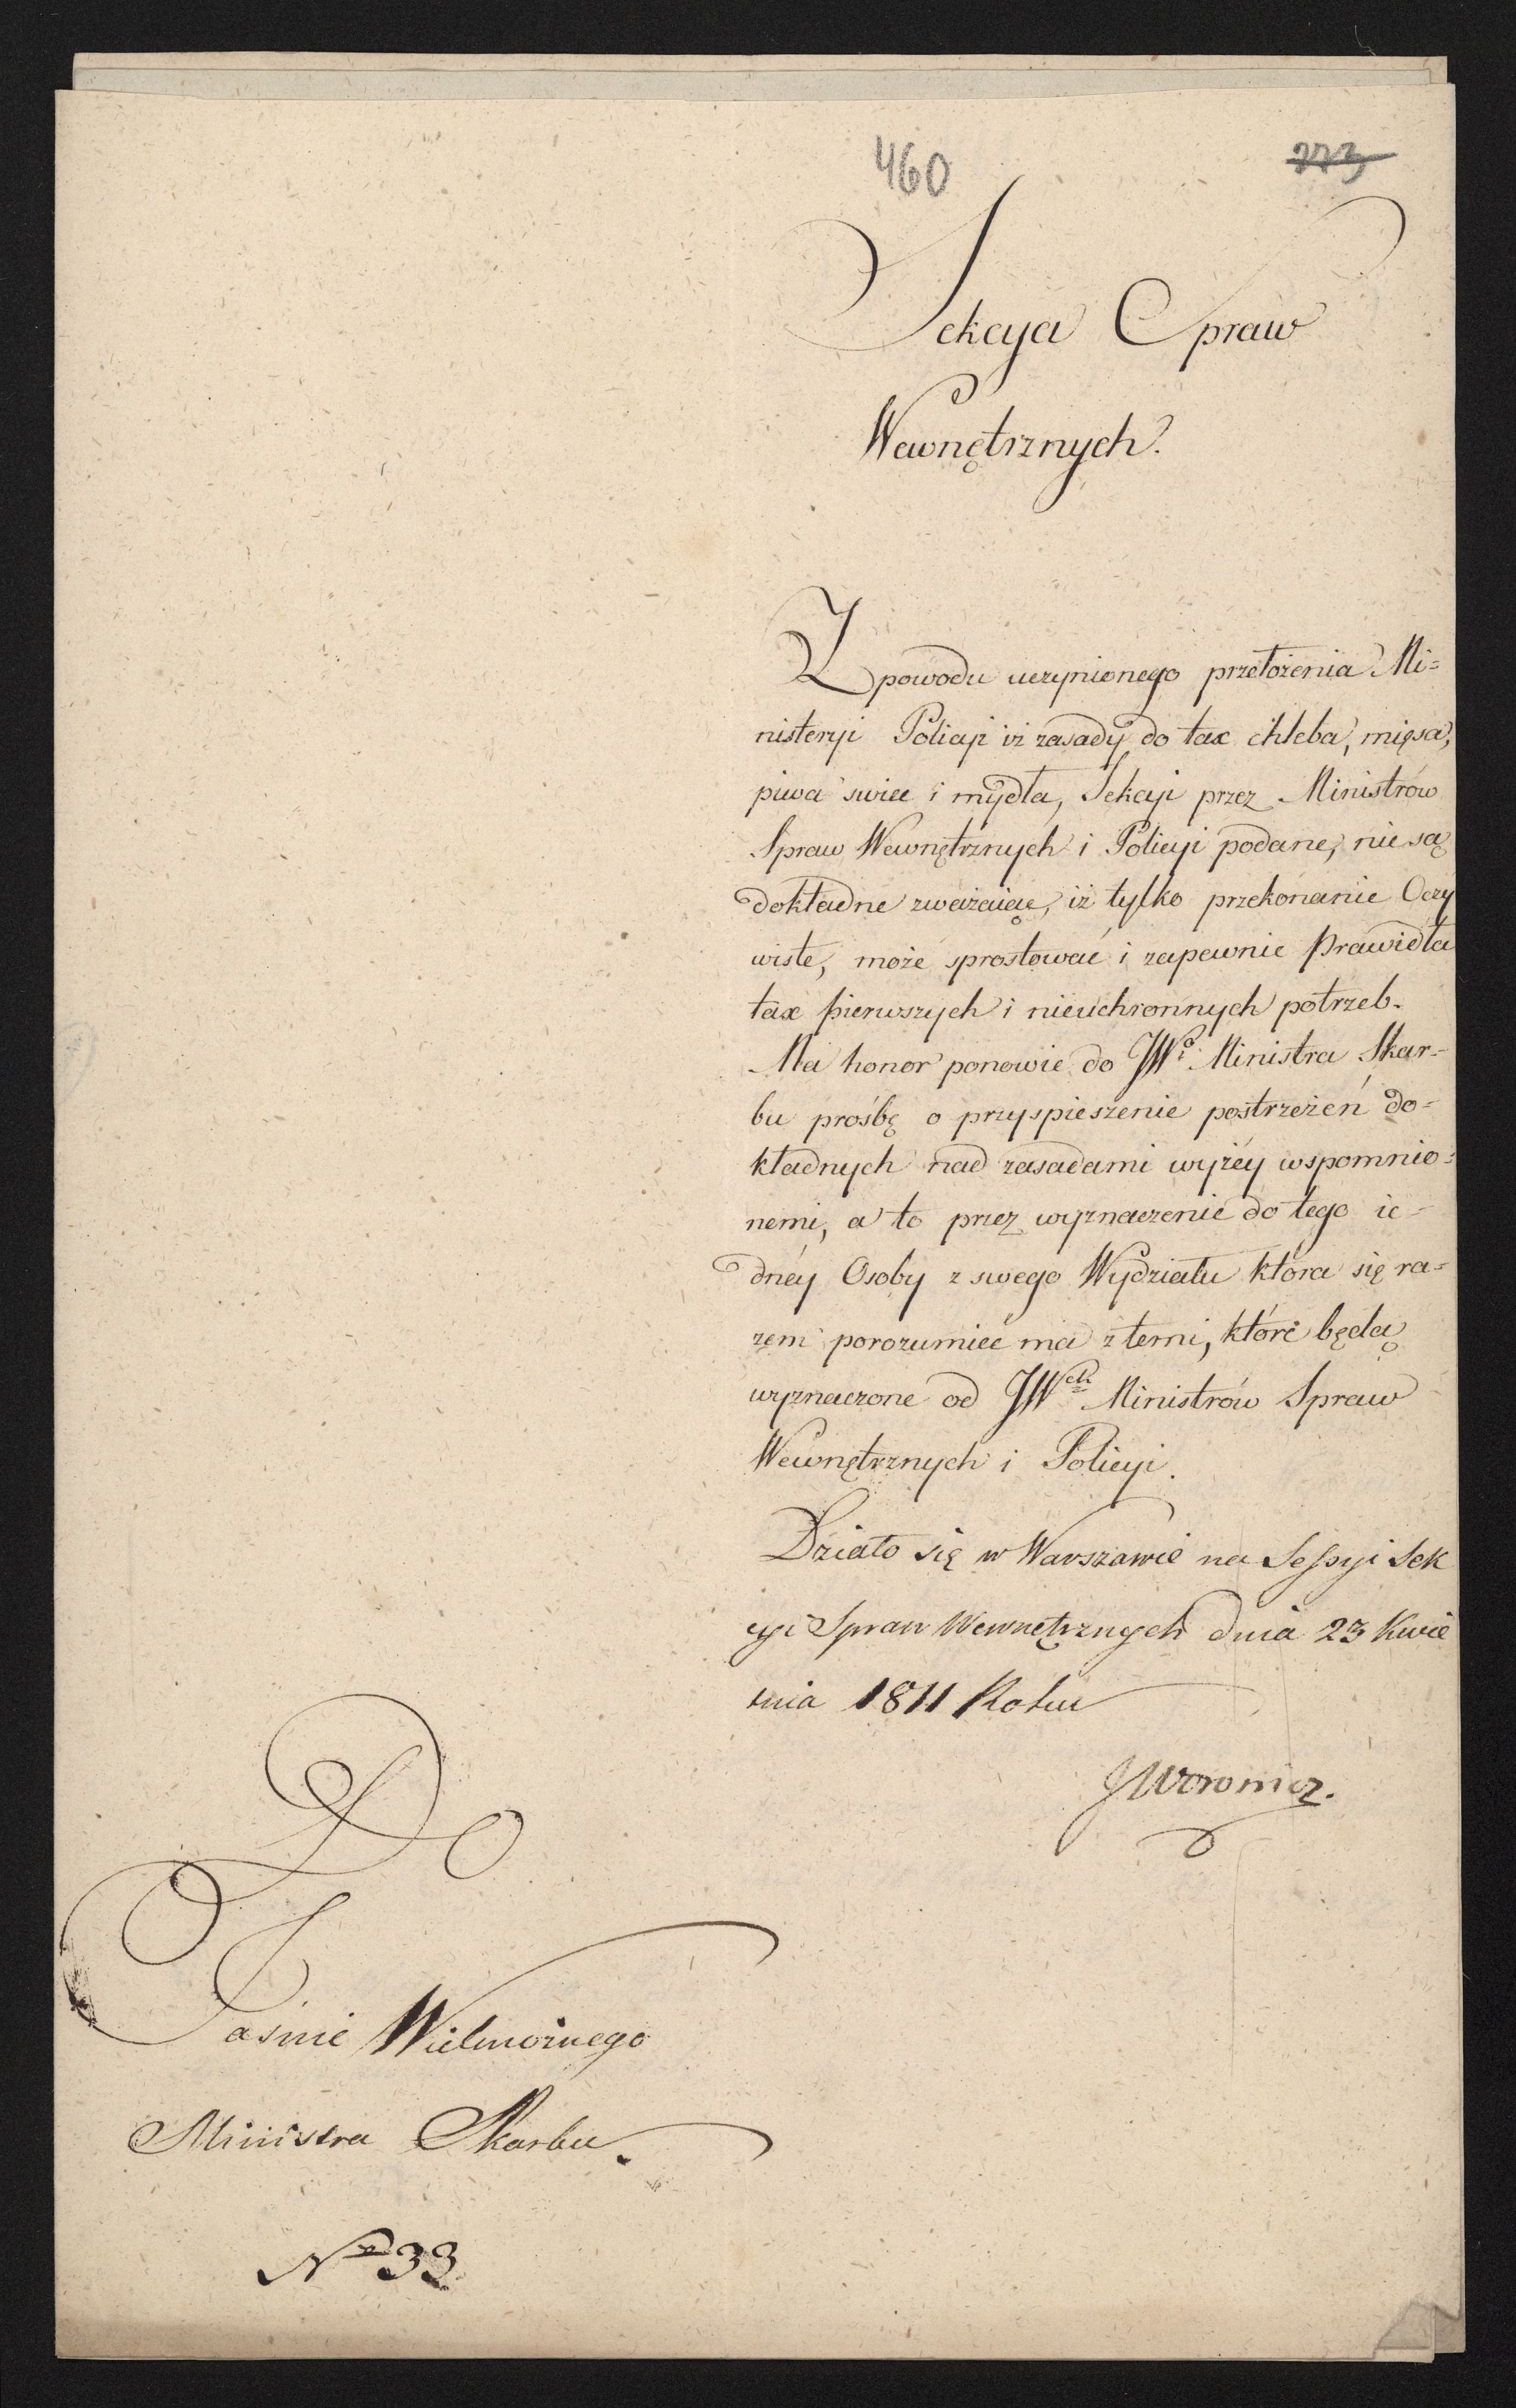 460 273
Sekcya Spraw
Wewnętrznych.
Z powodu uczynionego przełożenia Mi=
nisteryi Policyi iż zasady do tax chleba, mięsa,
piwa swiec i mydła, Sekcyi przez Ministrów
Spraw Wewnętrznych i Policyi podane, nie są
dokładne zważaiąc, iż tylko przekonanie Oczy
wiste, może sprostować i zapewnic Prawidła
tax pierwszych i nieuchronnych potrzeb.
Ma honor ponowic do JWo Ministra Skar=
bu prośbę o przyspieszenie postrzeżeń do=
kładnych nad zasadami wyżéy wspomnio=
nemi, a to przez wyznaczenie do tego ie=
dnéy Osoby z swego Wydziału która się ra=
zem porozumieć ma z temi, które będą
wyznaczone od JWch Ministrów Spraw
Wewnętrznych i Policyi.
Działo się w Warszawie na Sessyi Sek
cyi Spraw Wewnętrznych dnia 23 Kwie
tnia 1811 Roku
JWoronicz.
Do
Jaśnie Wielmożnego
Ministra Skarbu.
No 33